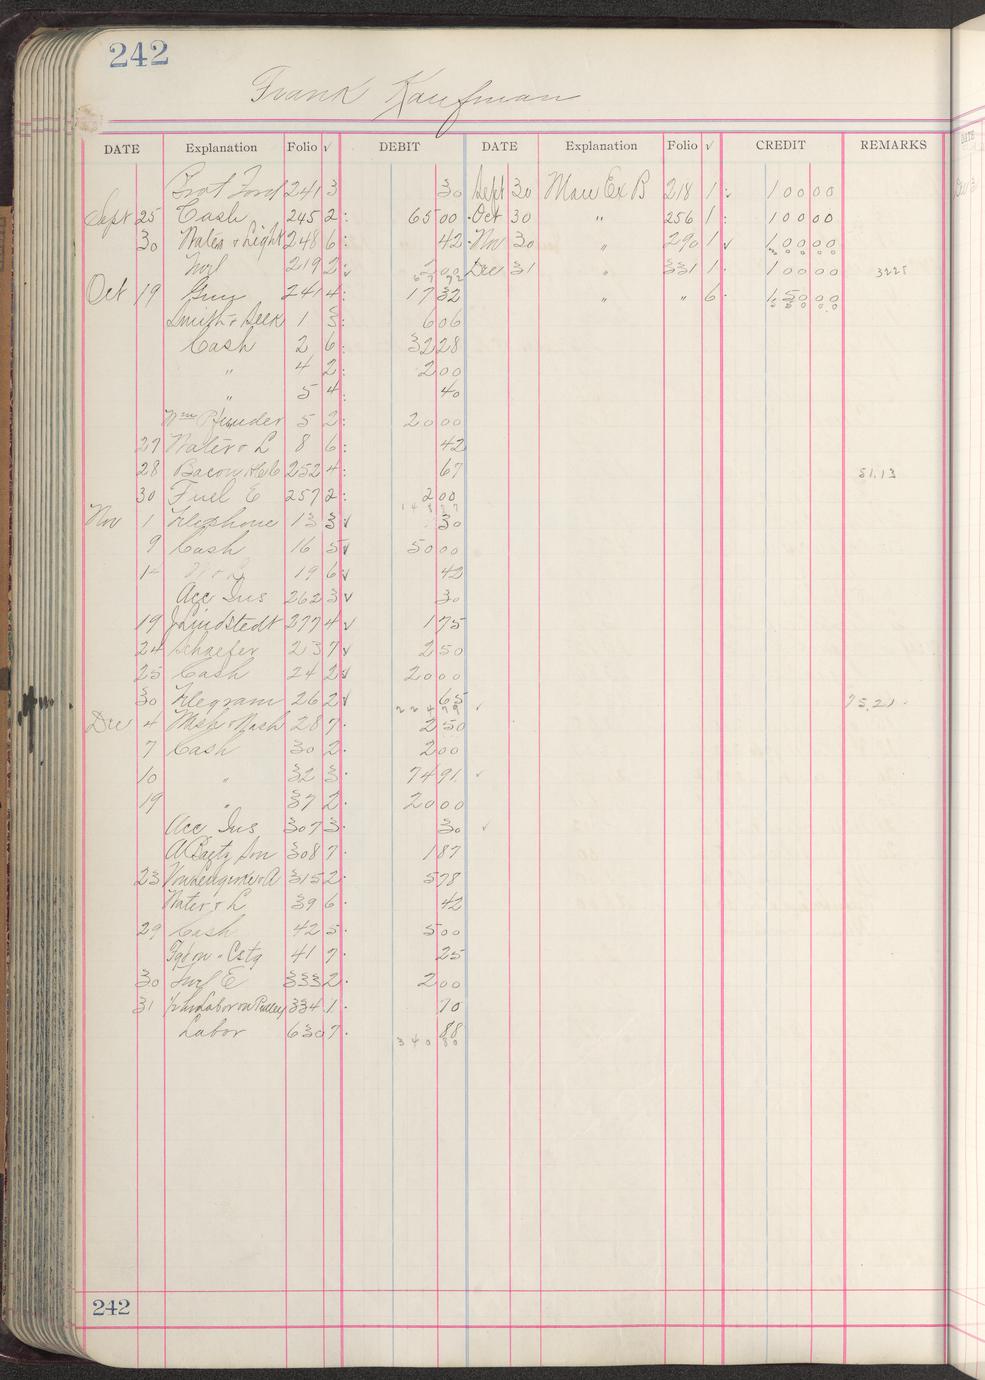 242
Frank Kaufman
DATE Explanation Folio √ DEBIT DATE Explanation Folio √ CREDIT REMARKS
241 3 30 Sept 30 Man Ex B 218 1 : 100 00
Sept 25 Cash 245 2 : 65 00 Oct 30 " 256 1 : 100 00
30 Water & Light 248 6 : 42 Nov 30 " 290 1 √ 100 00
Fuel 219 2 : 2 00 Dec 31 " 331 1 100 00 3228
67 72 300 00
Oct 19 Gun 241 4 : 17 32 " " 6 150 00
Smith & Seek 1 3 : 6 06
Cash 2 6 : 32 28
" 4 2 : 2 00
" 5 4 : 40
Wm 5 2 : 20 00
27 Water & L 8 6 : 42
28 Bacon 252 4 : 67 51.13
30 Fuel E 257 2 : 2 00
Nov 1 Telephone 13 3 √ 30
9 Cash 16 5 √ 50 00
W & L 19 6 √ 42
Acc Ins 262 3 √ 30
19 J Lindstedt 277 4 √ 1 75
24 Schaefer 23 7 √ 2 50
25 Cash 24 2 √ 20 00
30 Telegram 26 2 √ 65 75.21
224 79 √
Dec 4 Msh & Nash 28 7 2 50
7 Cash 30 2 2 00
10 " 32 3 74 91 √
19 " 37 2 20 00
Acc Ins 307 3 30 √
Son 308 7 1 87
23 315 2 5 78
Water & L 39 6 42
29 Cash 42 5 5 00
Cstg 41 7 25
30 Fuel E 333 2 2 00
31 Labor on Pulley 334 1 70
Labor 630 7 88
340 80
242